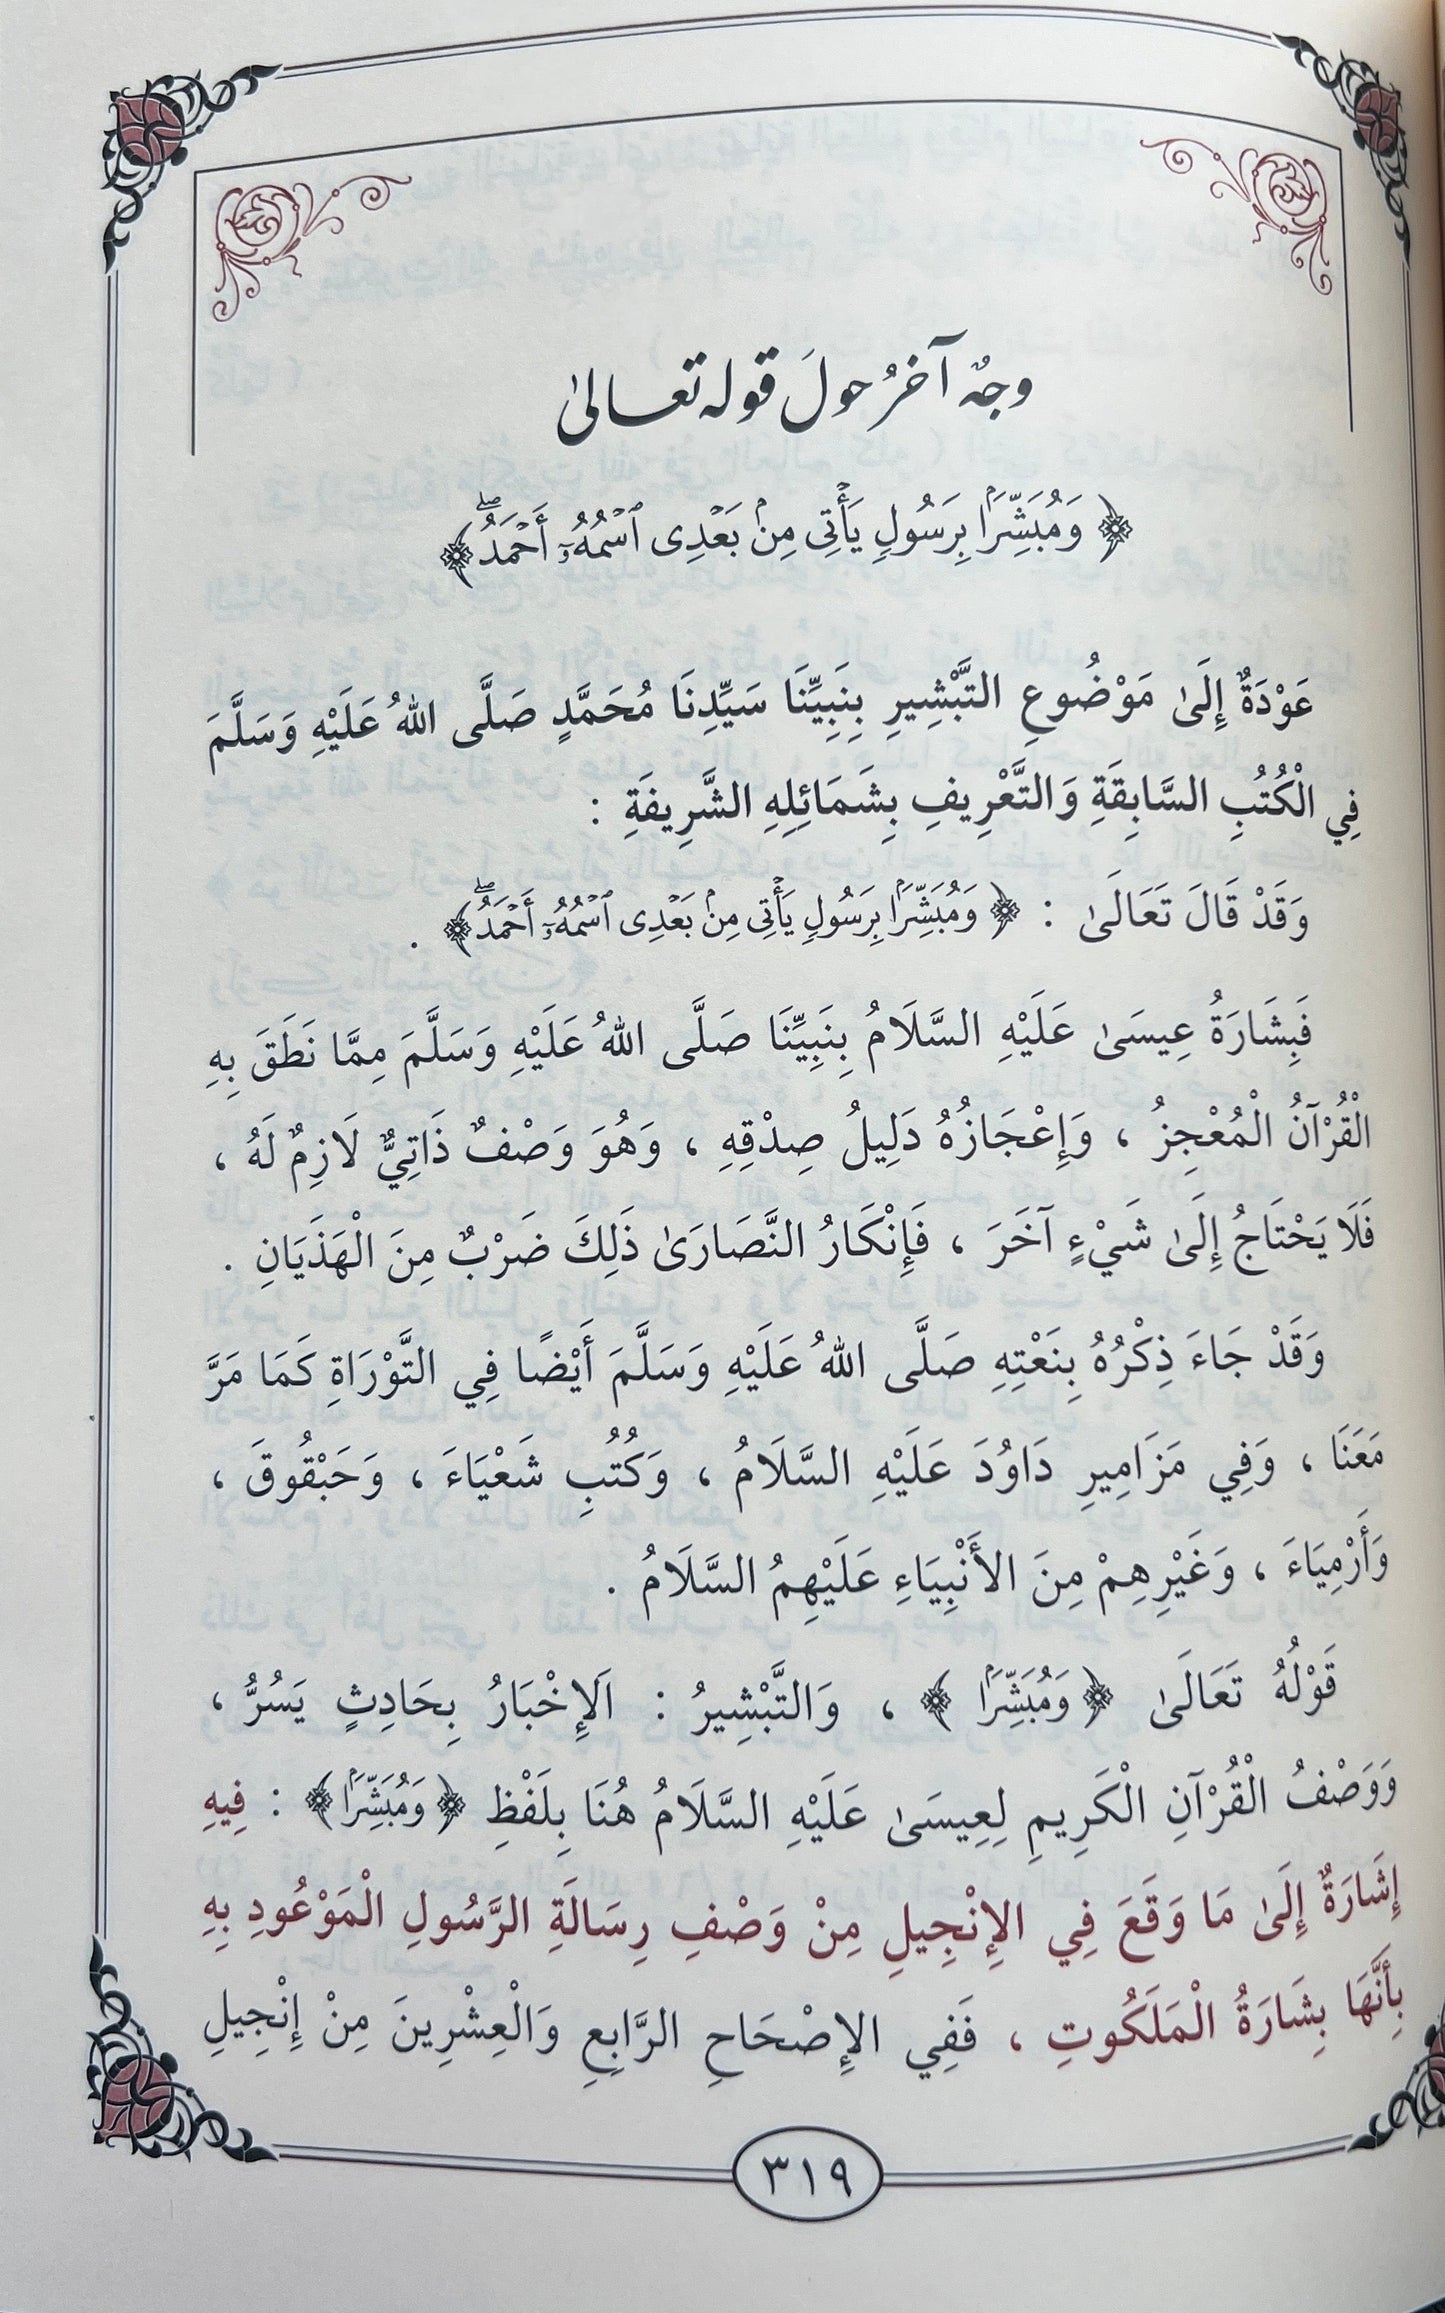 وجهٌ آخرُ حولَ قوله تعالىٰ
﴿ وَمُبَشِّرَۢا بِرَسُولٖ يَأۡتِي مِنۢ بَعۡدِي ٱسۡمُهُۥٓ أَحۡمَدُۖ ﴾
عَوْدَةٌ إِلَىٰ مَوْضُوعِ التَّبْشِيرِ بِنَبِيِّنَا سَيِّدِنَا مُحَمَّدٍ صَلَّى اللهُ عَلَيْهِ وَسَلَّمَ
فِي الْكُتُبِ السَّابِقَةِ وَالتَّعْرِيفِ بِشَمَائِلِهِ الشَّرِيفَةِ :
وَقَدْ قَالَ تَعَالَىٰ : ﴿ وَمُبَشِّرَۢا بِرَسُولٖ يَأۡتِي مِنۢ بَعۡدِي ٱسۡمُهُۥٓ أَحۡمَدُۖ ﴾ .
فَبِشَارَةُ عِيسَىٰ عَلَيْهِ السَّلَامُ بِنَبِيِّنَا صَلَّى اللهُ عَلَيْهِ وَسَلَّمَ مِمَّا نَطَقَ بِهِ
الْقُرْآنُ الْمُعْجِزُ ، وَإِعْجَازُهُ دَلِيلُ صِدْقِهِ ، وَهُوَ وَصْفٌ ذَاتِيٌّ لَازِمٌ لَهُ ،
فَلَا يَحْتَاجُ إِلَىٰ شَيْءٍ آخَرَ ، فَإِنْكَارُ النَّصَارَىٰ ذَلِكَ ضَرْبٌ مِنَ الْهَذَيَانِ .
وَقَدْ جَاءَ ذِكْرُهُ بِنَعْتِهِ صَلَّى اللهُ عَلَيْهِ وَسَلَّمَ أَيْضًا فِي التَّوْرَاةِ كَمَا مَرَّ
مَعَنَا ، وَفِي مَزَامِيرِ دَاوُدَ عَلَيْهِ السَّلَامُ ، وَكُتُبِ شَعْيَاءَ ، وَحَبْقُوقَ ،
وَأَرْمِيَاءَ ، وَغَيْرِهِمْ مِنَ الأَنْبِيَاءِ عَلَيْهِمُ السَّلَامُ .
قَوْلُهُ تَعَالَىٰ ﴿ وَمُبَشِّرَۢا ﴾ ، وَالتَّبْشِيرُ : اَلإِخْبَارُ بِحَادِثٍ يَسُرُّ ،
وَوَصْفُ الْقُرْآنِ الْكَرِيمِ لِعِيسَىٰ عَلَيْهِ السَّلَامُ هُنَا بِلَفْظِ ﴿ وَمُبَشِّرَۢا ﴾ : فِيهِ
إِشَارَةٌ إِلَىٰ مَا وَقَعَ فِي الإِنْجِيلِ مِنْ وَصْفِ رِسَالَةِ الرَّسُولِ الْمَوْعُودِ بِهِ
بِأَنَّهَا بِشَارَةُ الْمَلَكُوتِ ، فَفِي الإِصْحَاحِ الرَّابِعِ وَالْعِشْرِينَ مِنْ إِنْجِيلِ
٣١٩